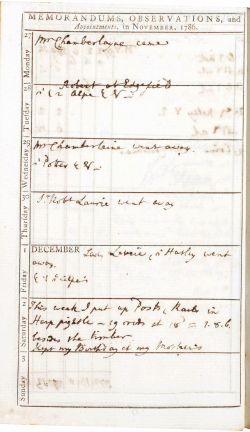 MEMORANDUMS, OBSERVATIONS, and
Appointments, in NOVEMBER, 1786.
27 Monday
Mr Chamberlaine came
28 Tuesday
Robert at Edgefield
29 Wednesday
Mr Chamberlaine went away.
Potter &
30 Thursday
Sr Robt Laurie went away
1 Friday
DECEMBER Lady Laurie, Hatley went
away.
2 Saturday
This week I put up Posts, Rails in
Hempightle 19 rods at 18d = 1.8.6.
besides the timber
Kept my Birthday at my Mother's
3 Sunday